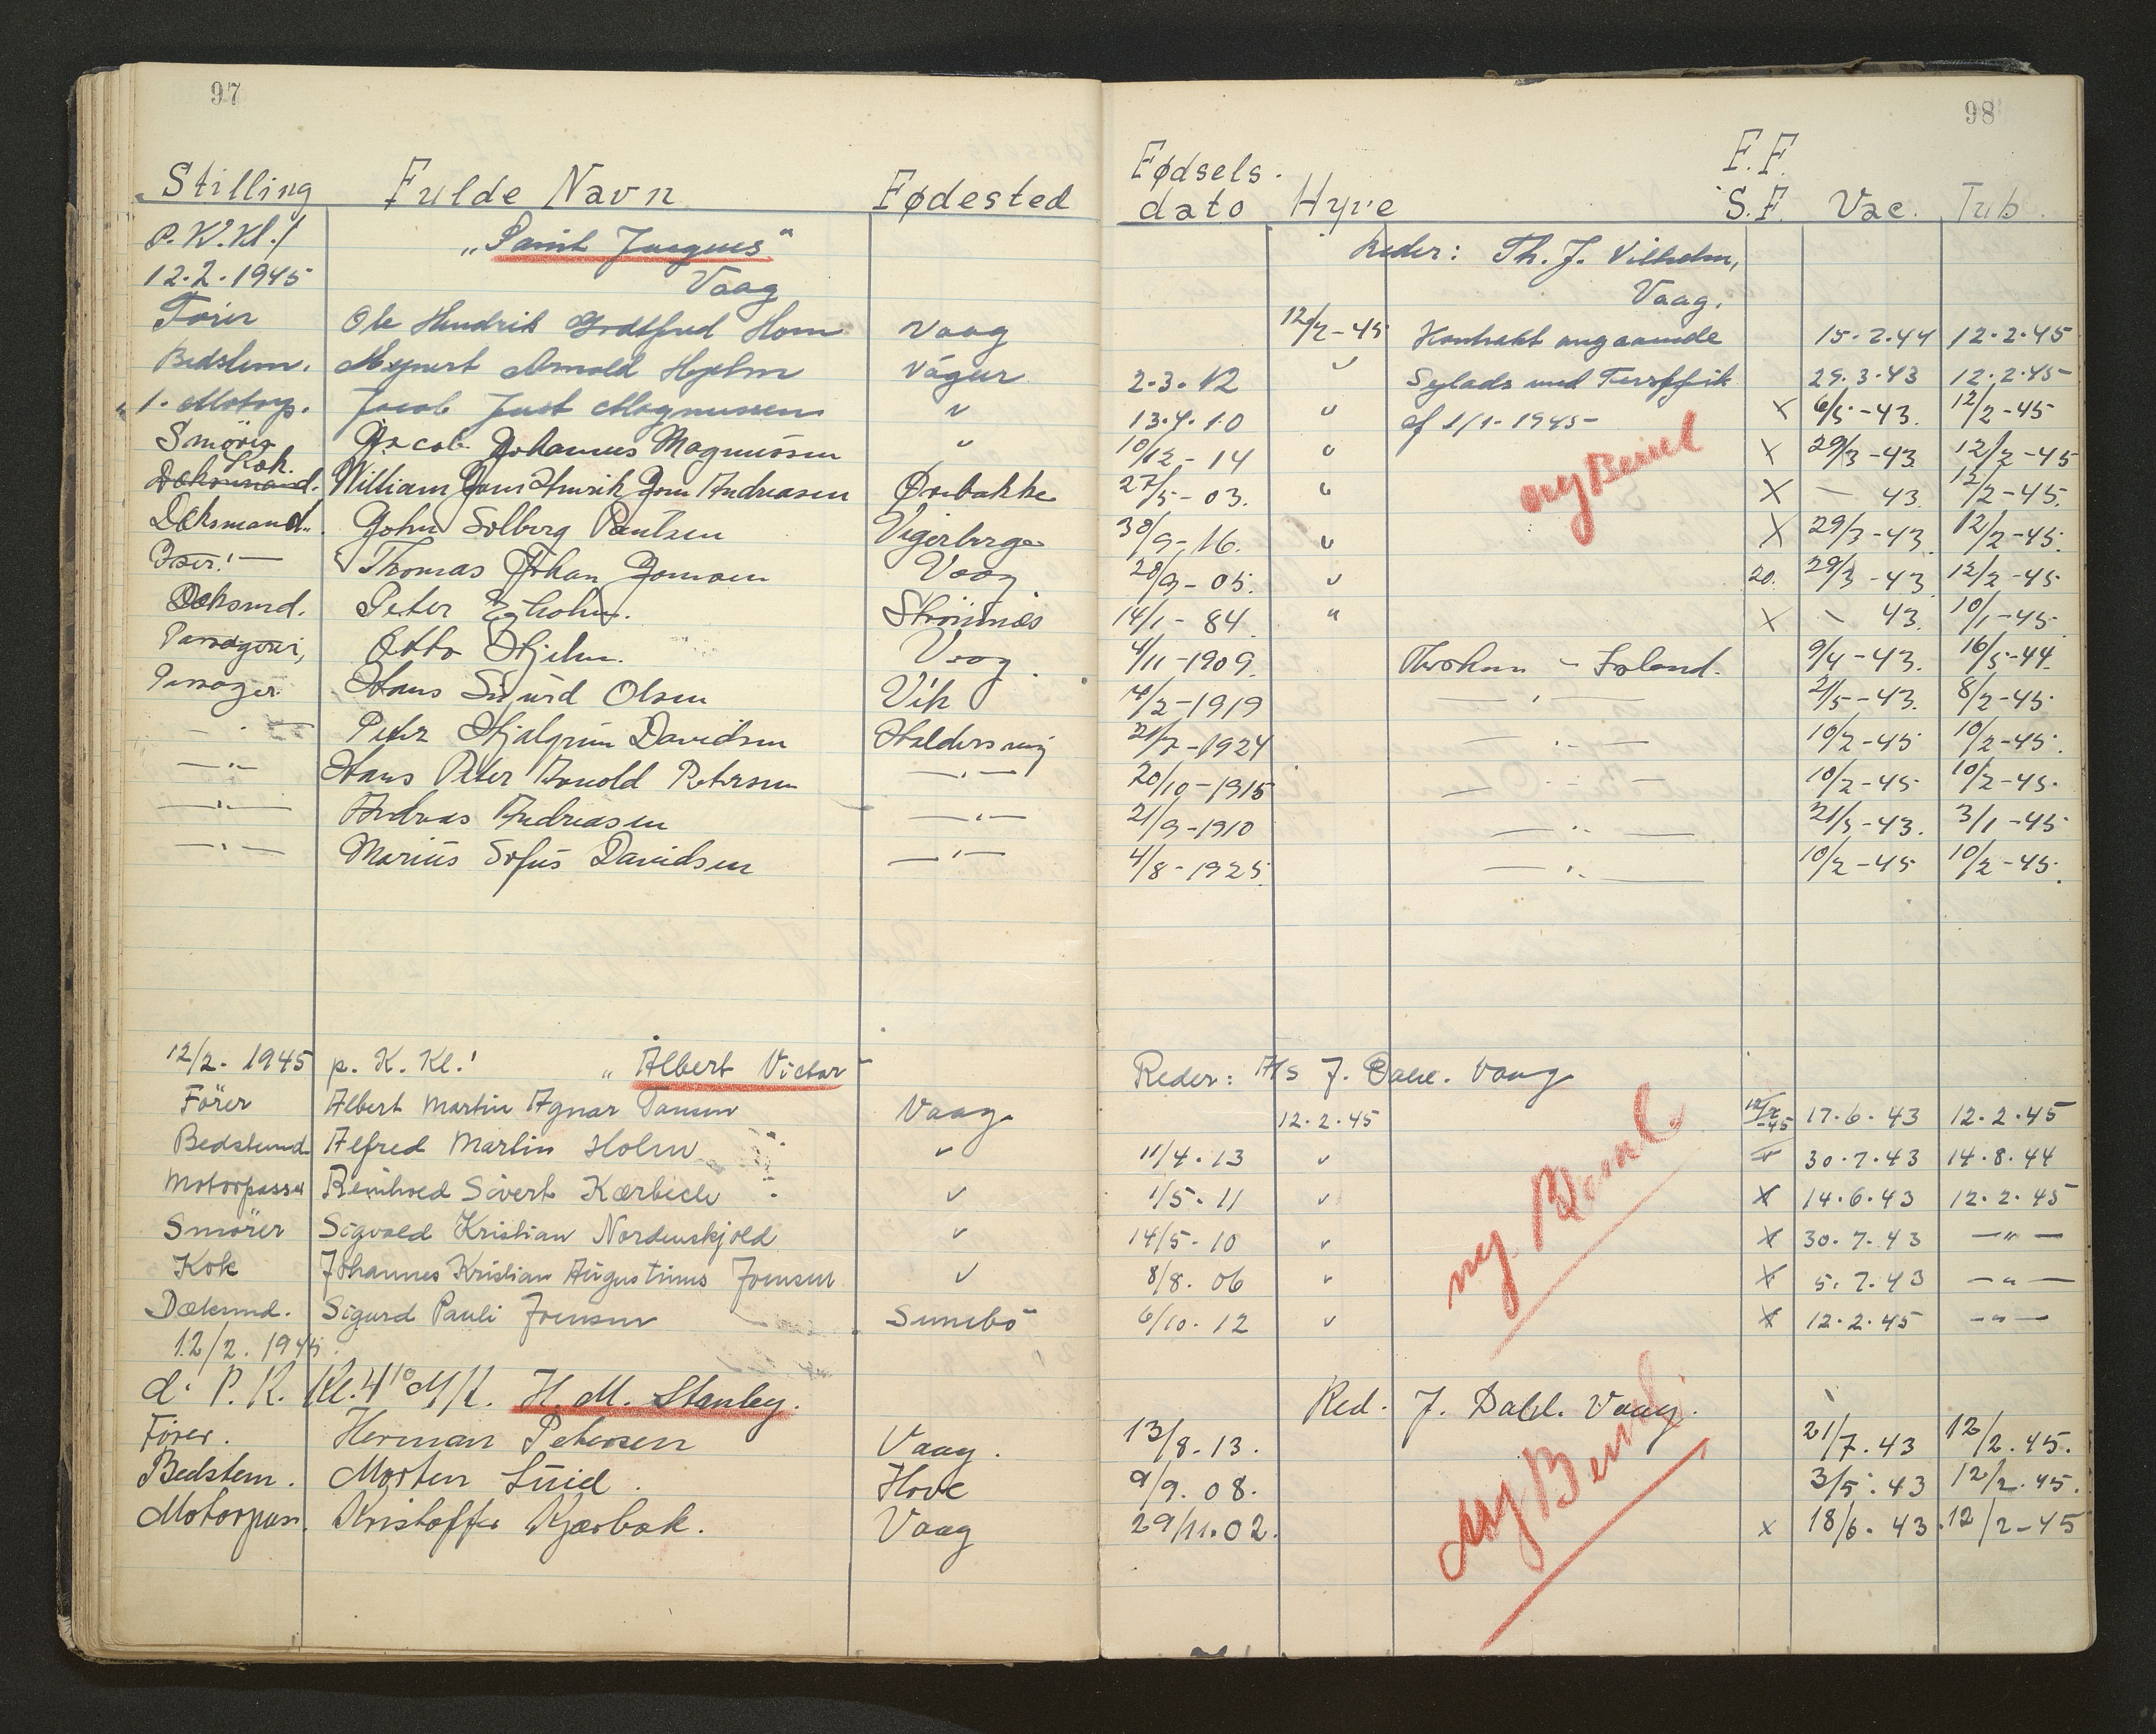 97
98
Stilling Fulde Navn Fødested Fødsels- dato Hyre F.F. S.F. Vac. Tub.
P.K.Kl.!
12.2.1945 "Saint Jacques" Reder: Th. J. Vilhelm,
Vaag Vaag.
Förer Ole Hendrik Vaag 12/2-45 Kontrakt angaaende 15.2.44 12.2.45
Bedstem. Arnold Hjelm Vágur 2.3.12 " Sejlads med 29.3.43 12.2.45
1. Motorp. Jacob Just Magnussen " 13.4.10 " af 1/1-1945 x 6/5-43. 12/2-45
Smörer Jacob Johannes Magnussen " 10/12-14 " ny Besæt x 29/3-43 12/2-45
Kok. Dæksmand. William Jens Henrik Andreasen Ørebakke 27/5-03. " x — 43. 12/2-45.
Dæksmand. John Solberg Poulsen 30/9-16. " x 29/3-43. 12/2-45.
Thomas Johan Joensen Vaag 28/9-05. " 20. 29/3-43 12/2-45
Dæksmd. Peter 14/1-84. " x " 43. 10/1-45.
Otto Hjelm. Vaag 4/11-1909. — Island. 9/4-43. 16/5-44.
Passager Hans Sigurd Olsen Vik /2-1919 — " — 2/5-43. 8/2-45.
— " — Peter Hjalgrim Davidsen Haldersvig 21/7-1924 — " — 10/2-45 10/2-45.
— " — Hans Peter Arnold Petersen — " — 20/10-1915 — " — 10/2-45 10/2-45.
— " — Andreas Andreasen — " — 21/9-1910 — " — 21/5-43. 3/1-45
— " — Marius Sofus Davidsen — " — 4/8-1925. — " — 10/2-45 10/2-45.
12/2. 1945 p. K. Kl.! "Albert Victor" Reder: A/s J. Dahl. Vaag
Förer Albert Martin Agnar Vaag 12.2.45 12/2-45 17.6.43 12.2.45
Bedstemd Alfred Martin Holm " 11/4.13 " " 30.7.43 14.8.44
Motorpasser Sivert " 1/5.11 " x 14.6.43 12.2.45
Smörer Sigvald Kristian Nordenskjold " 14/5-10 " ny Besæt x 30.7.43 — " —
Kok Johannes Kristian Augustinus Joensen " 8/8.06 " x 5.7.43 — " —
Dæksmd. Sigurd Pauli Joensen Sumbö 6/10.12 " x 12.2.45 — " —
12/2. 1945.
d. P. K. Kl. 4¹⁰ M/K. H. M. Stanley. Red. J. Dahl. Vaag.
Förer. Herman Petersen Vaag. 13/8.13. 21/7.43 12/2.45.
Bedstem. Morten Hove 9/9.08. ny Besæt 3/5.43 12/2.45.
Motorpas. Kristoffer Kjærbæk. Vaag 29/11.02. x 18/6.43. 12/2-45